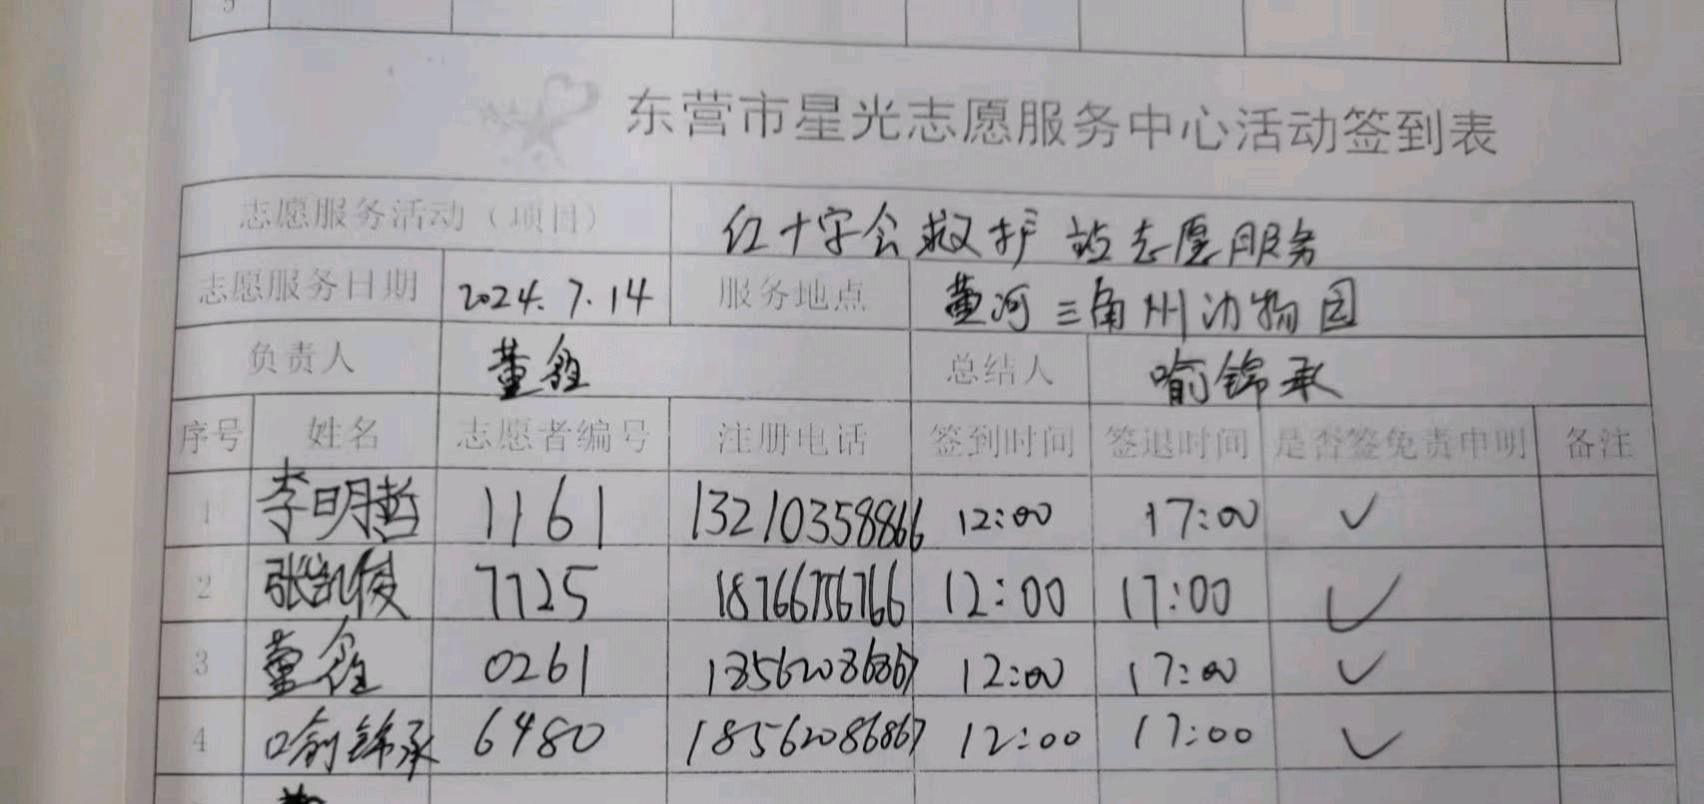 5
东营市星光志愿服务中心活动签到表
志愿服务活动（项目） 红十字会救护站志愿服务
志愿服务日期 2024.7.14 服务地点 黄河三角州动物园
负责人 董鑫 总结人 喻锦承
序号 姓名 志愿者编号 注册电话 签到时间 签退时间 是否签免责申明 备注
1 李明哲 1161 13210358866 12:00 17:00 ✓
2 张凯俊 7725 18766756766 12:00 17:00 ✓
3 董鑫 0261 18562086867 12:00 17:00 ✓
4 喻锦承 6480 18562086867 12:00 17:00 ✓